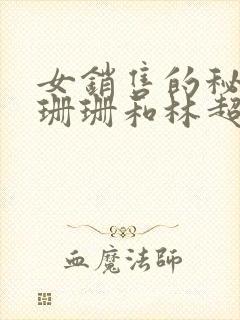 女銷售的秘
珊珊和林超
血魔法師